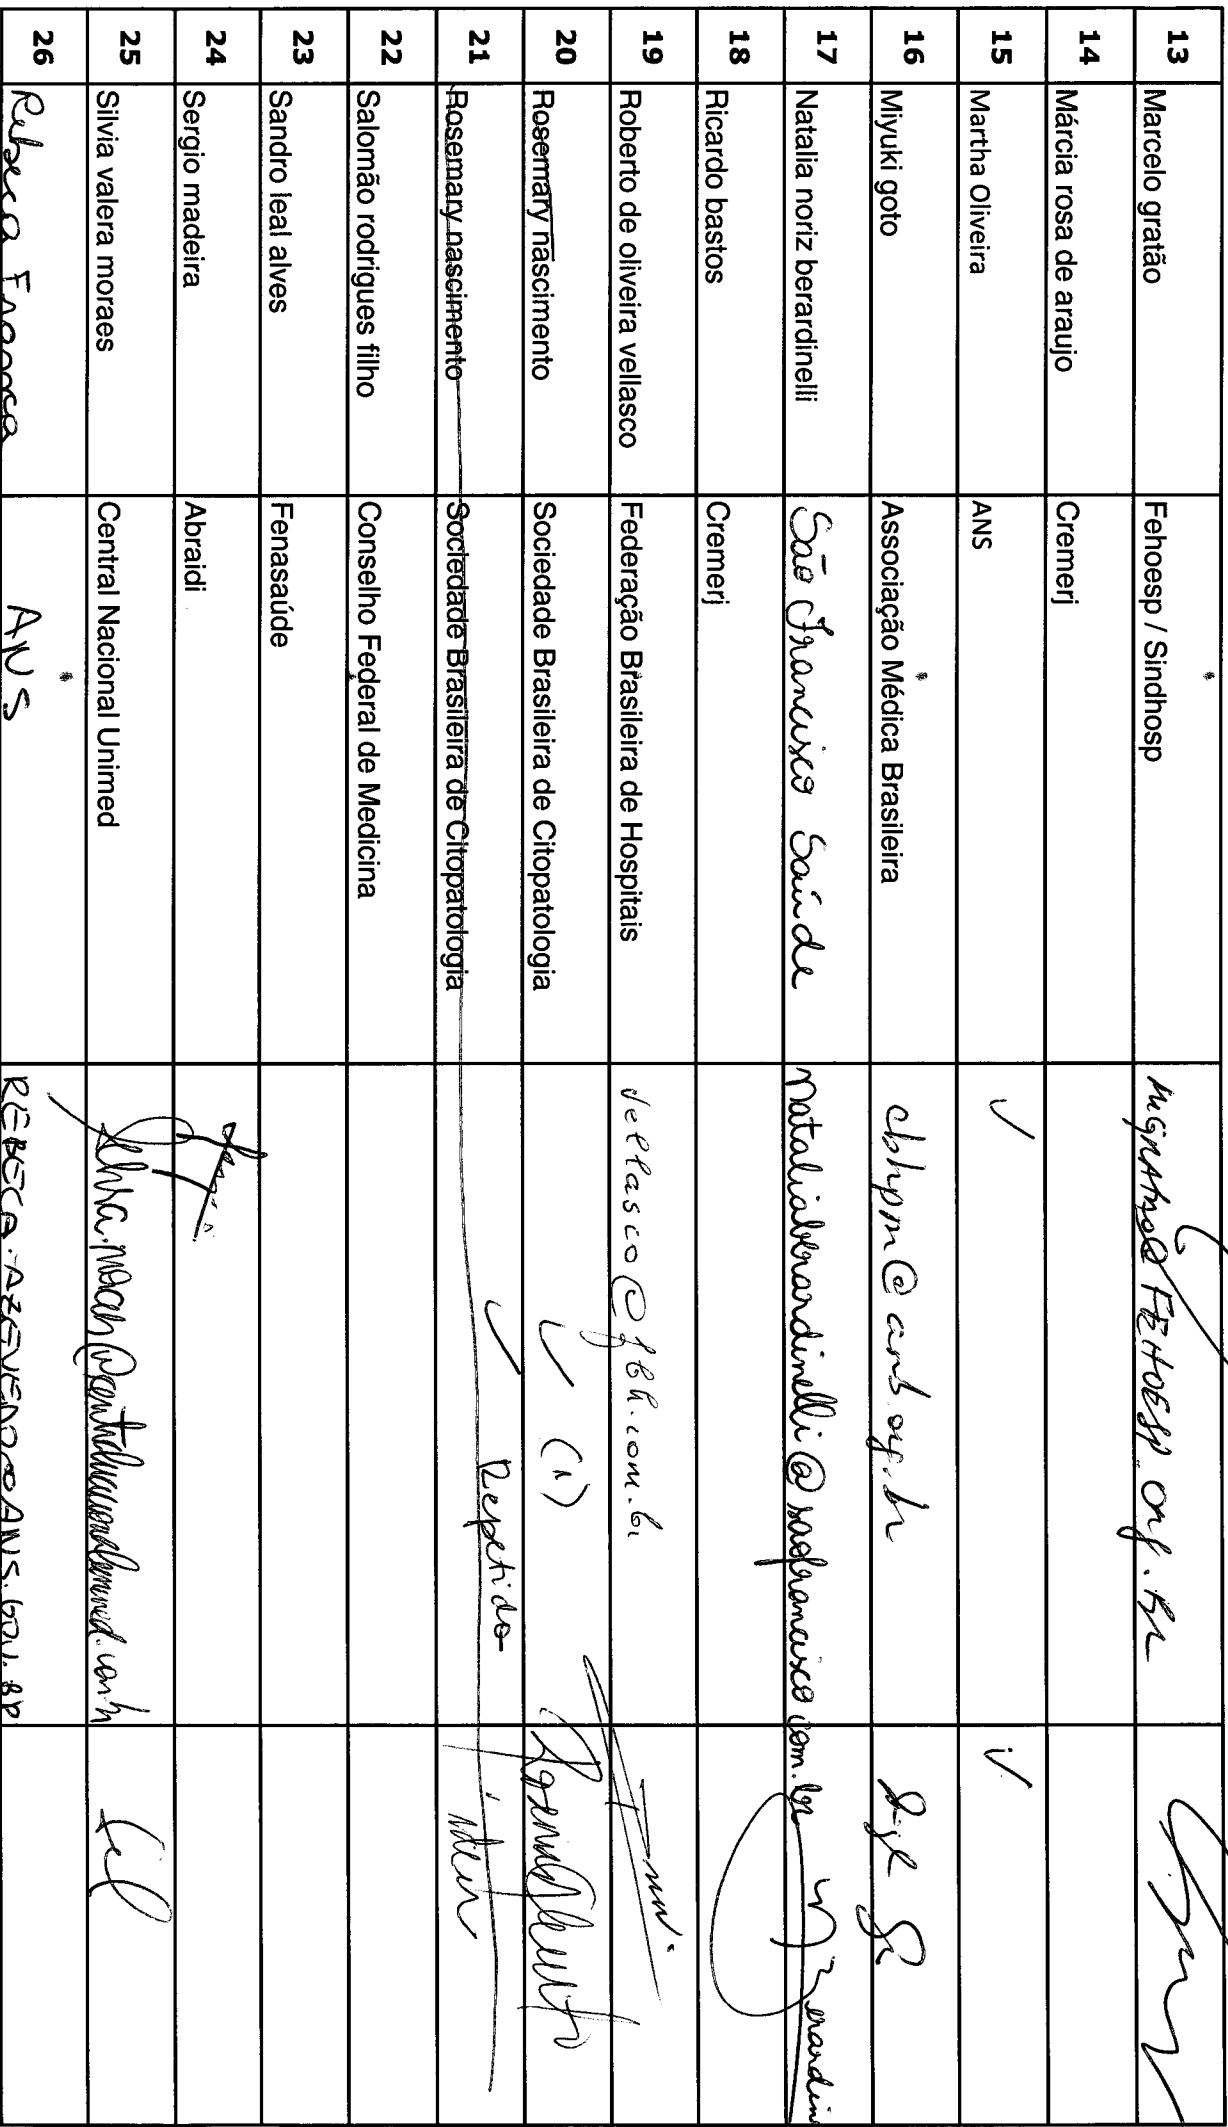 13 Marcelo gratão Fehoesp / Sindhosp mgratao@FEHOESP.org.br
14 Márcia rosa de araujo Cremerj
15 Martha Oliveira ANS ✓ ✓
16 Miyuki goto Associação Médica Brasileira cbhpm@amb.org.br
17 Natalia noriz berardinelli São Francisco Saúde nataliaberardinelli@saofrancisco.com.br
18 Ricardo bastos Cremerj
19 Roberto de oliveira vellasco Federação Brasileira de Hospitais vellasco@fbh.com.br
20 Rosemary nascimento Sociedade Brasileira de Citopatologia ✓ (1)
21 Rosemary nascimento Sociedade Brasileira de Citopatologia ✓ Repetido idem
22 Salomão rodrigues filho Conselho Federal de Medicina
23 Sandro leal alves Fenasaúde
24 Sergio madeira Abraidi
25 Silvia valera moraes Central Nacional Unimed
26 Rebeca ANS